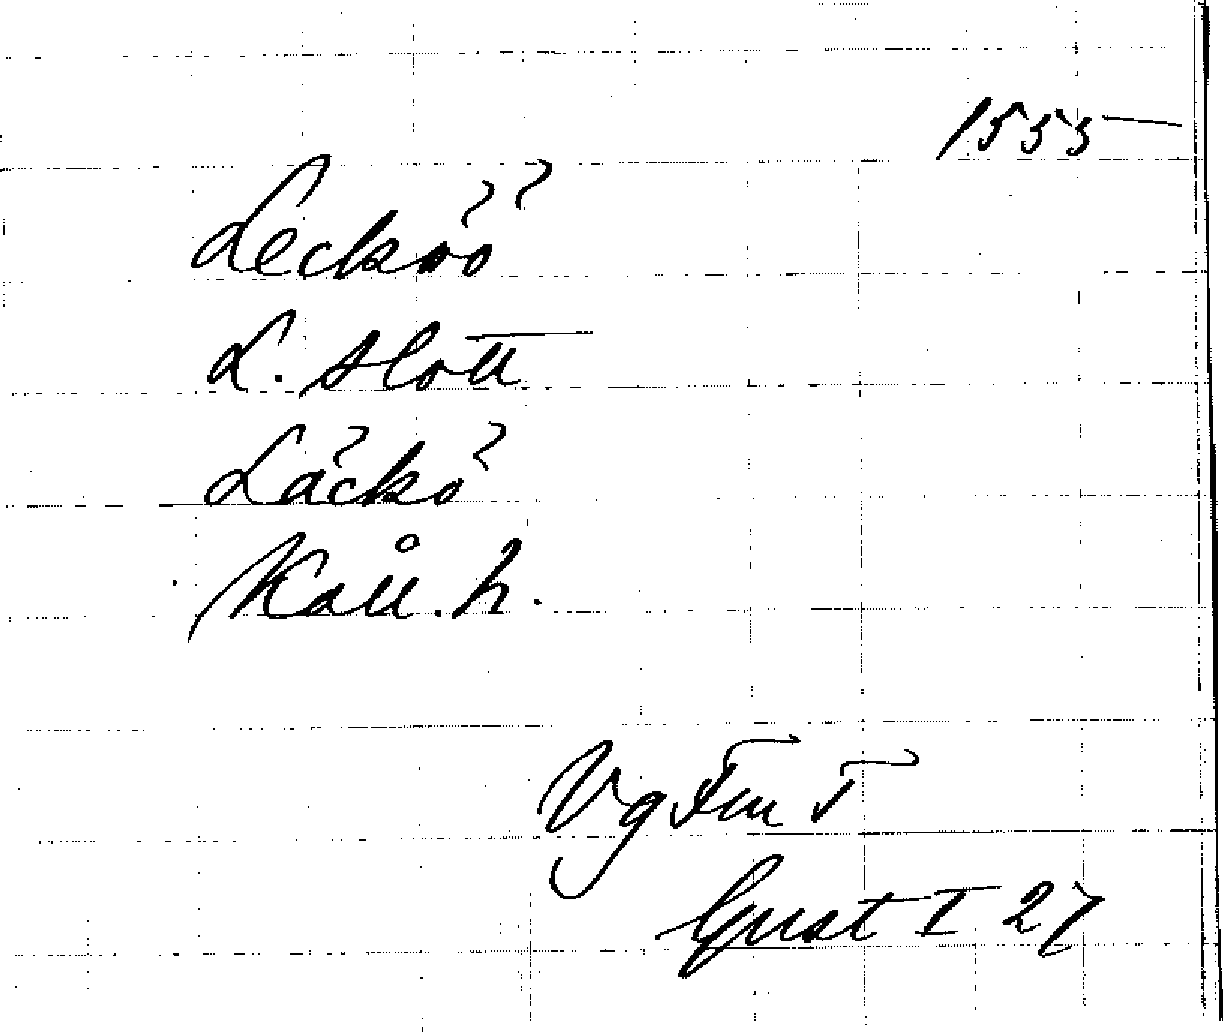 1555
Lecköö
L. slott
Läckö
Kåll. h.
Vg
Gust I 27